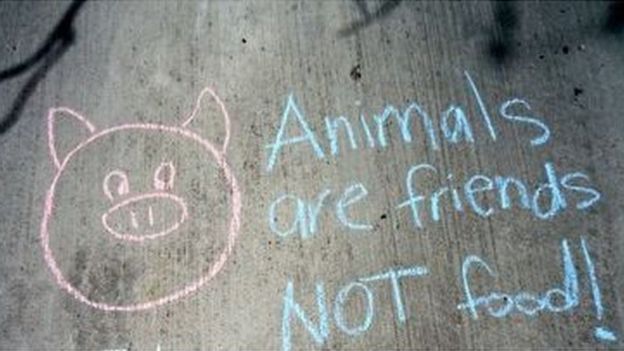 Animals
are friends
NOT food!